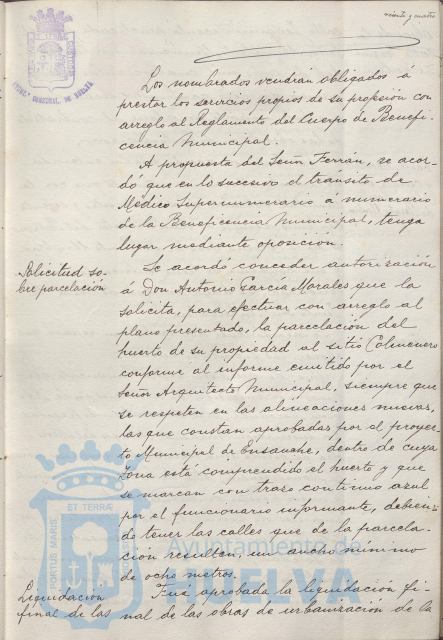 veinte y cuatro
Los nombrados vendrán obligados á
prestar los servicios propios de su profesión con
arreglo al Reglamento del Cuerpo de Benefi-
cencia Municipal.
A propuesta del Señor Terrán, se acor-
dó que en lo sucesivo el tránsito de
Médico Supernumerario a numerario
de la Beneficencia Municipal, tenga
lugar mediante oposición.
Solicitud so-
bre parcelación
Se acordó conceder autorización
á Don Antonio García Morales que la
solicita, para efectuar con arreglo al
plano presentado, la parcelación del
huerto de su propiedad al sitio
conforme al informe emitido por el
Señor Arquitecto Municipal, siempre que
se respeten en las alineaciones nuevas,
las que constan aprobadas por el proyec-
to Municipal de Ensanche, dentro de cuya
zona está comprendido el huerto y que
se marcan con trazo continuo azul
por el funcionario informante, debien-
do tener las calles que de la parcela-
ción resulten, un ancho mínimo
de ocho metros.
Liquidación
final de las
Fué aprobada la liquidación fi-
nal de las obras de urbanización de la
PORTUS MARIS
ET TERRÆ
Ayuntamiento de
HUELVA